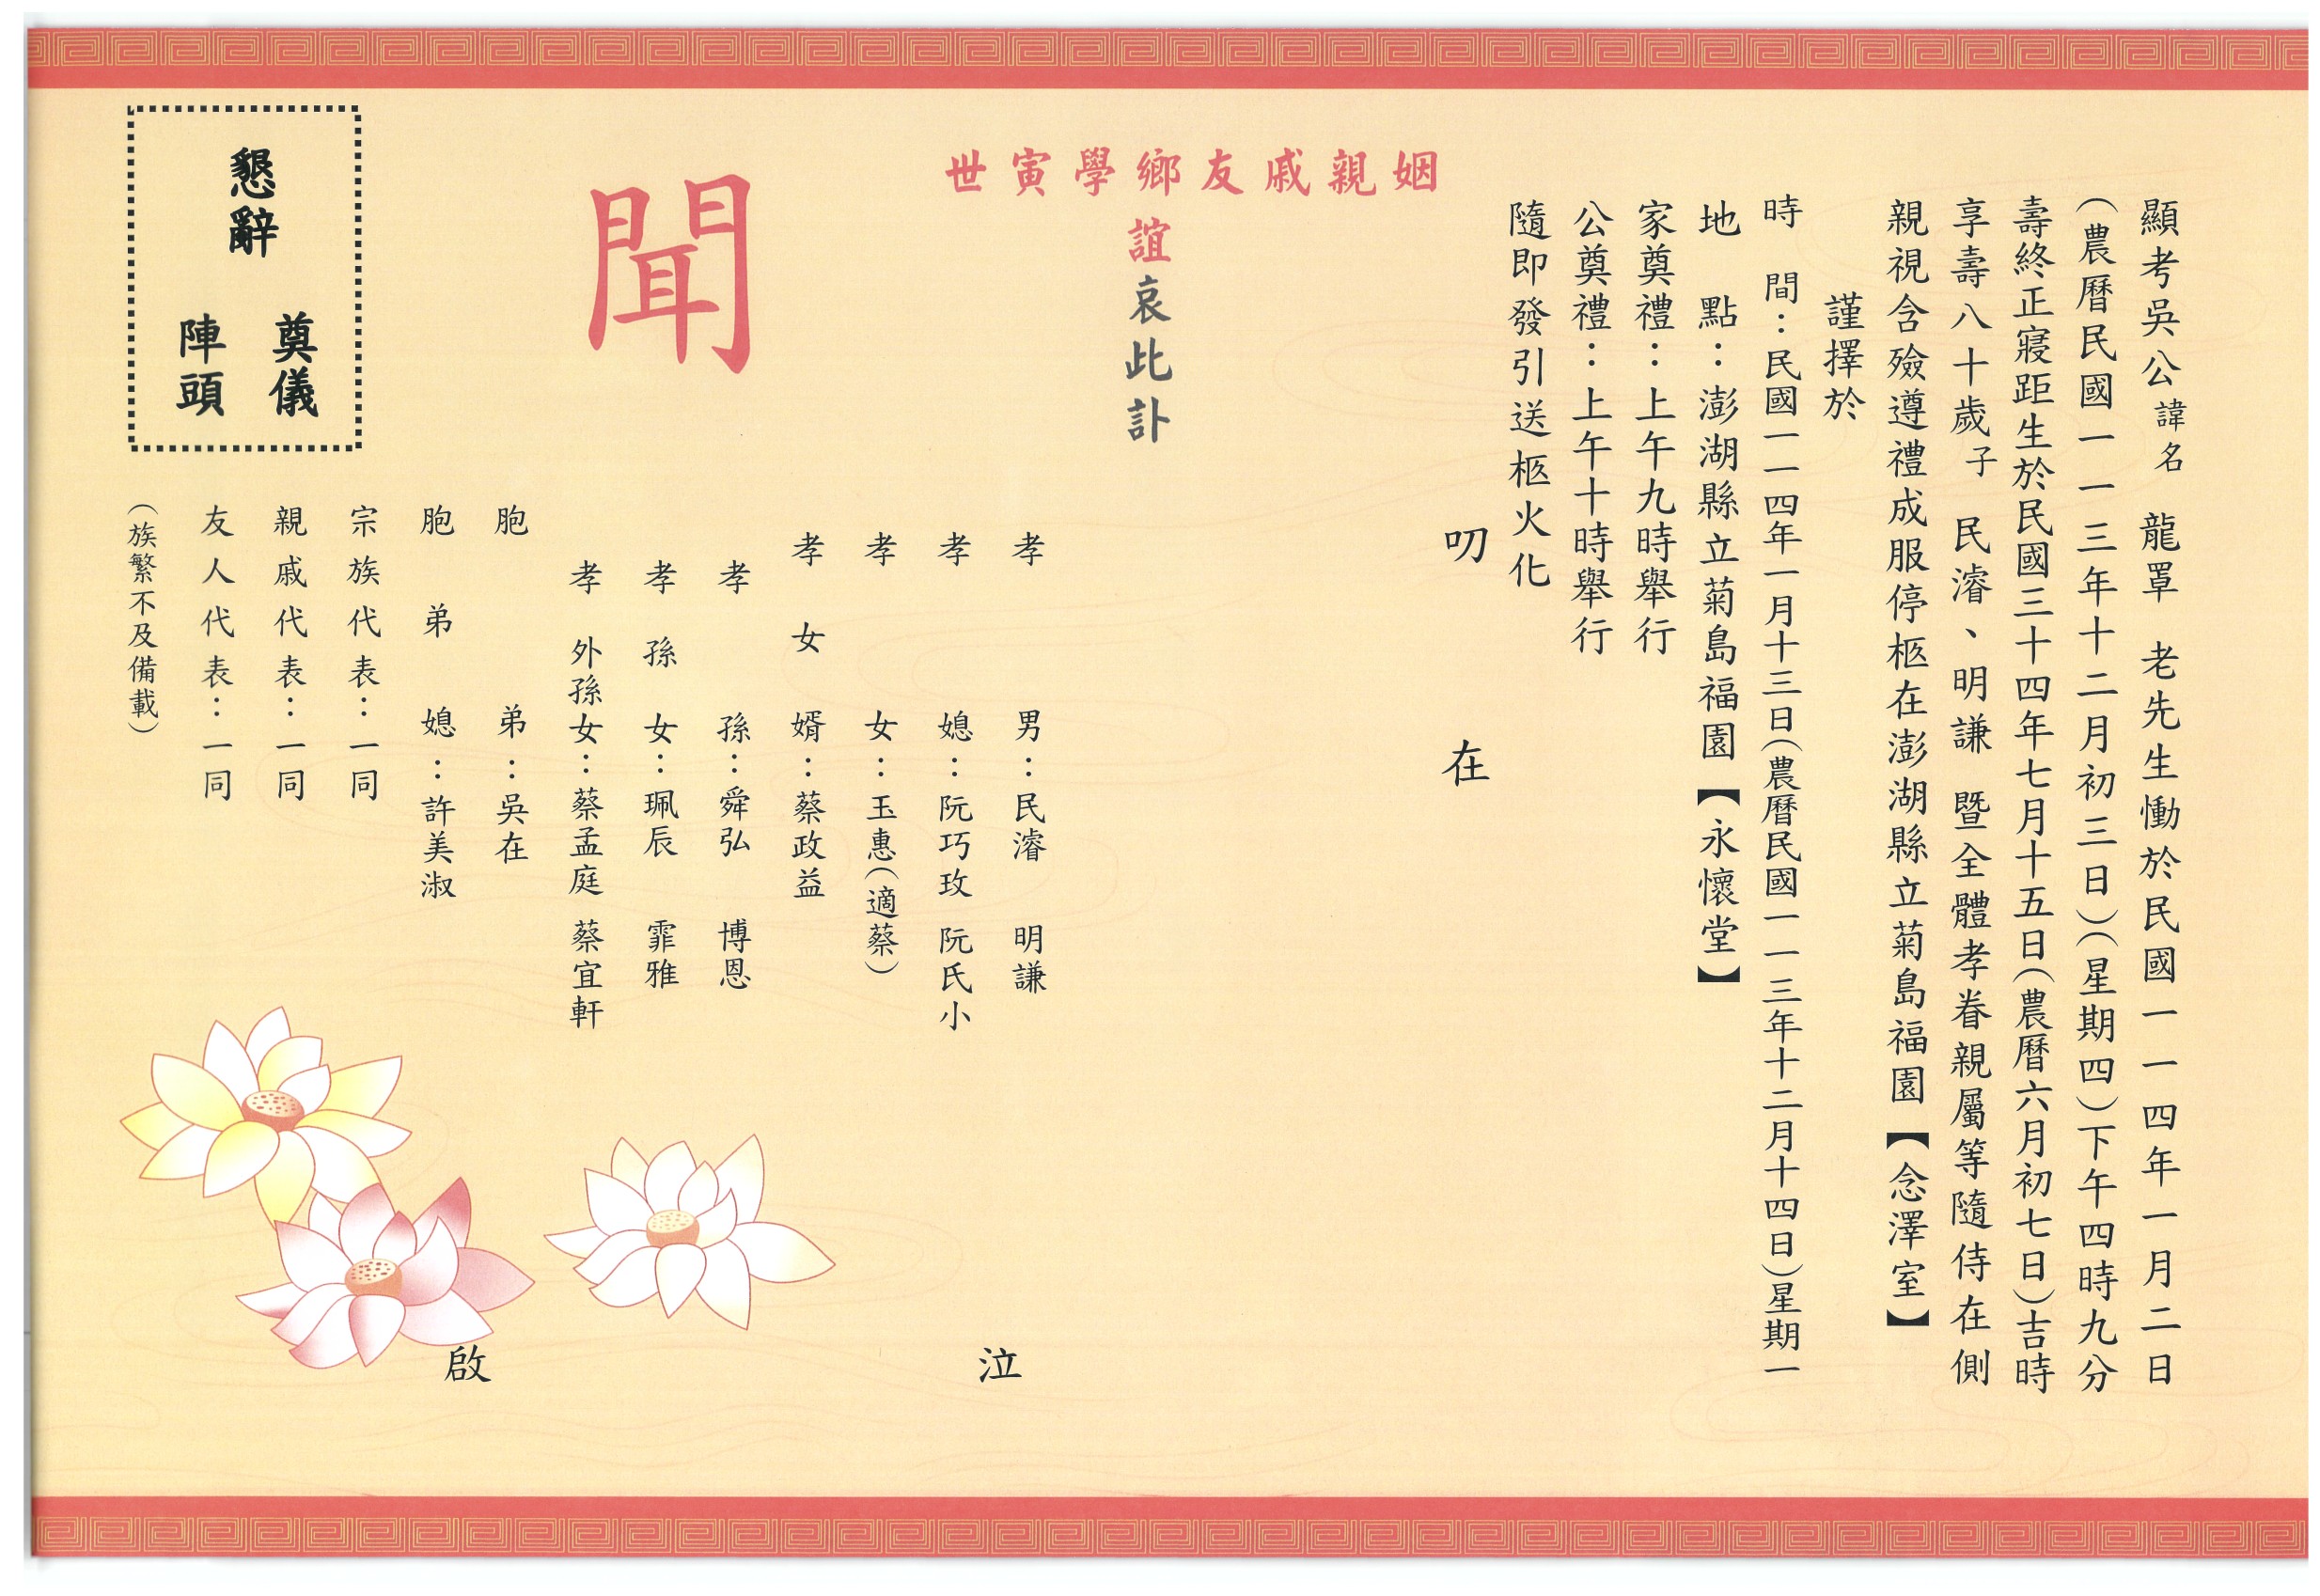 顯考吳公諱名 龍罩 老先生慟於民國一一四年一月二日
(農曆民國一一三年十二月初三日)(星期四)下午四時九分
壽終正寢距生於民國三十四年七月十五日(農曆六月初七日)吉時
享壽八十歲子 民濬、明謙 暨全體孝眷親屬等隨侍在側
親視含殮遵禮成服停柩在澎湖縣立菊島福園【念澤室】
謹擇於
時 間:民國一一四年一月十三日(農曆民國一一三年十二月十四日)星期一
地 點:澎湖縣立菊島福園【永懷堂】
家奠禮:上午九時舉行
公奠禮:上午十時舉行
隨即發引送柩火化
叨 在
姻親戚友鄉學寅世
誼哀此訃
聞
孝男:民濬 明謙
孝媳:阮巧玫 阮氏小
孝女:玉惠(適蔡)
孝女婿:蔡政益
孝孫:舜弘 博恩
孝孫女:珮辰 霏雅
孝外孫女:蔡孟庭 蔡宜軒
胞弟:吳在
胞弟媳:許美淑
宗族代表:一同
親戚代表:一同
友人代表:一同
(族繁不及備載)
泣 啟
懇辭
奠儀
陣頭